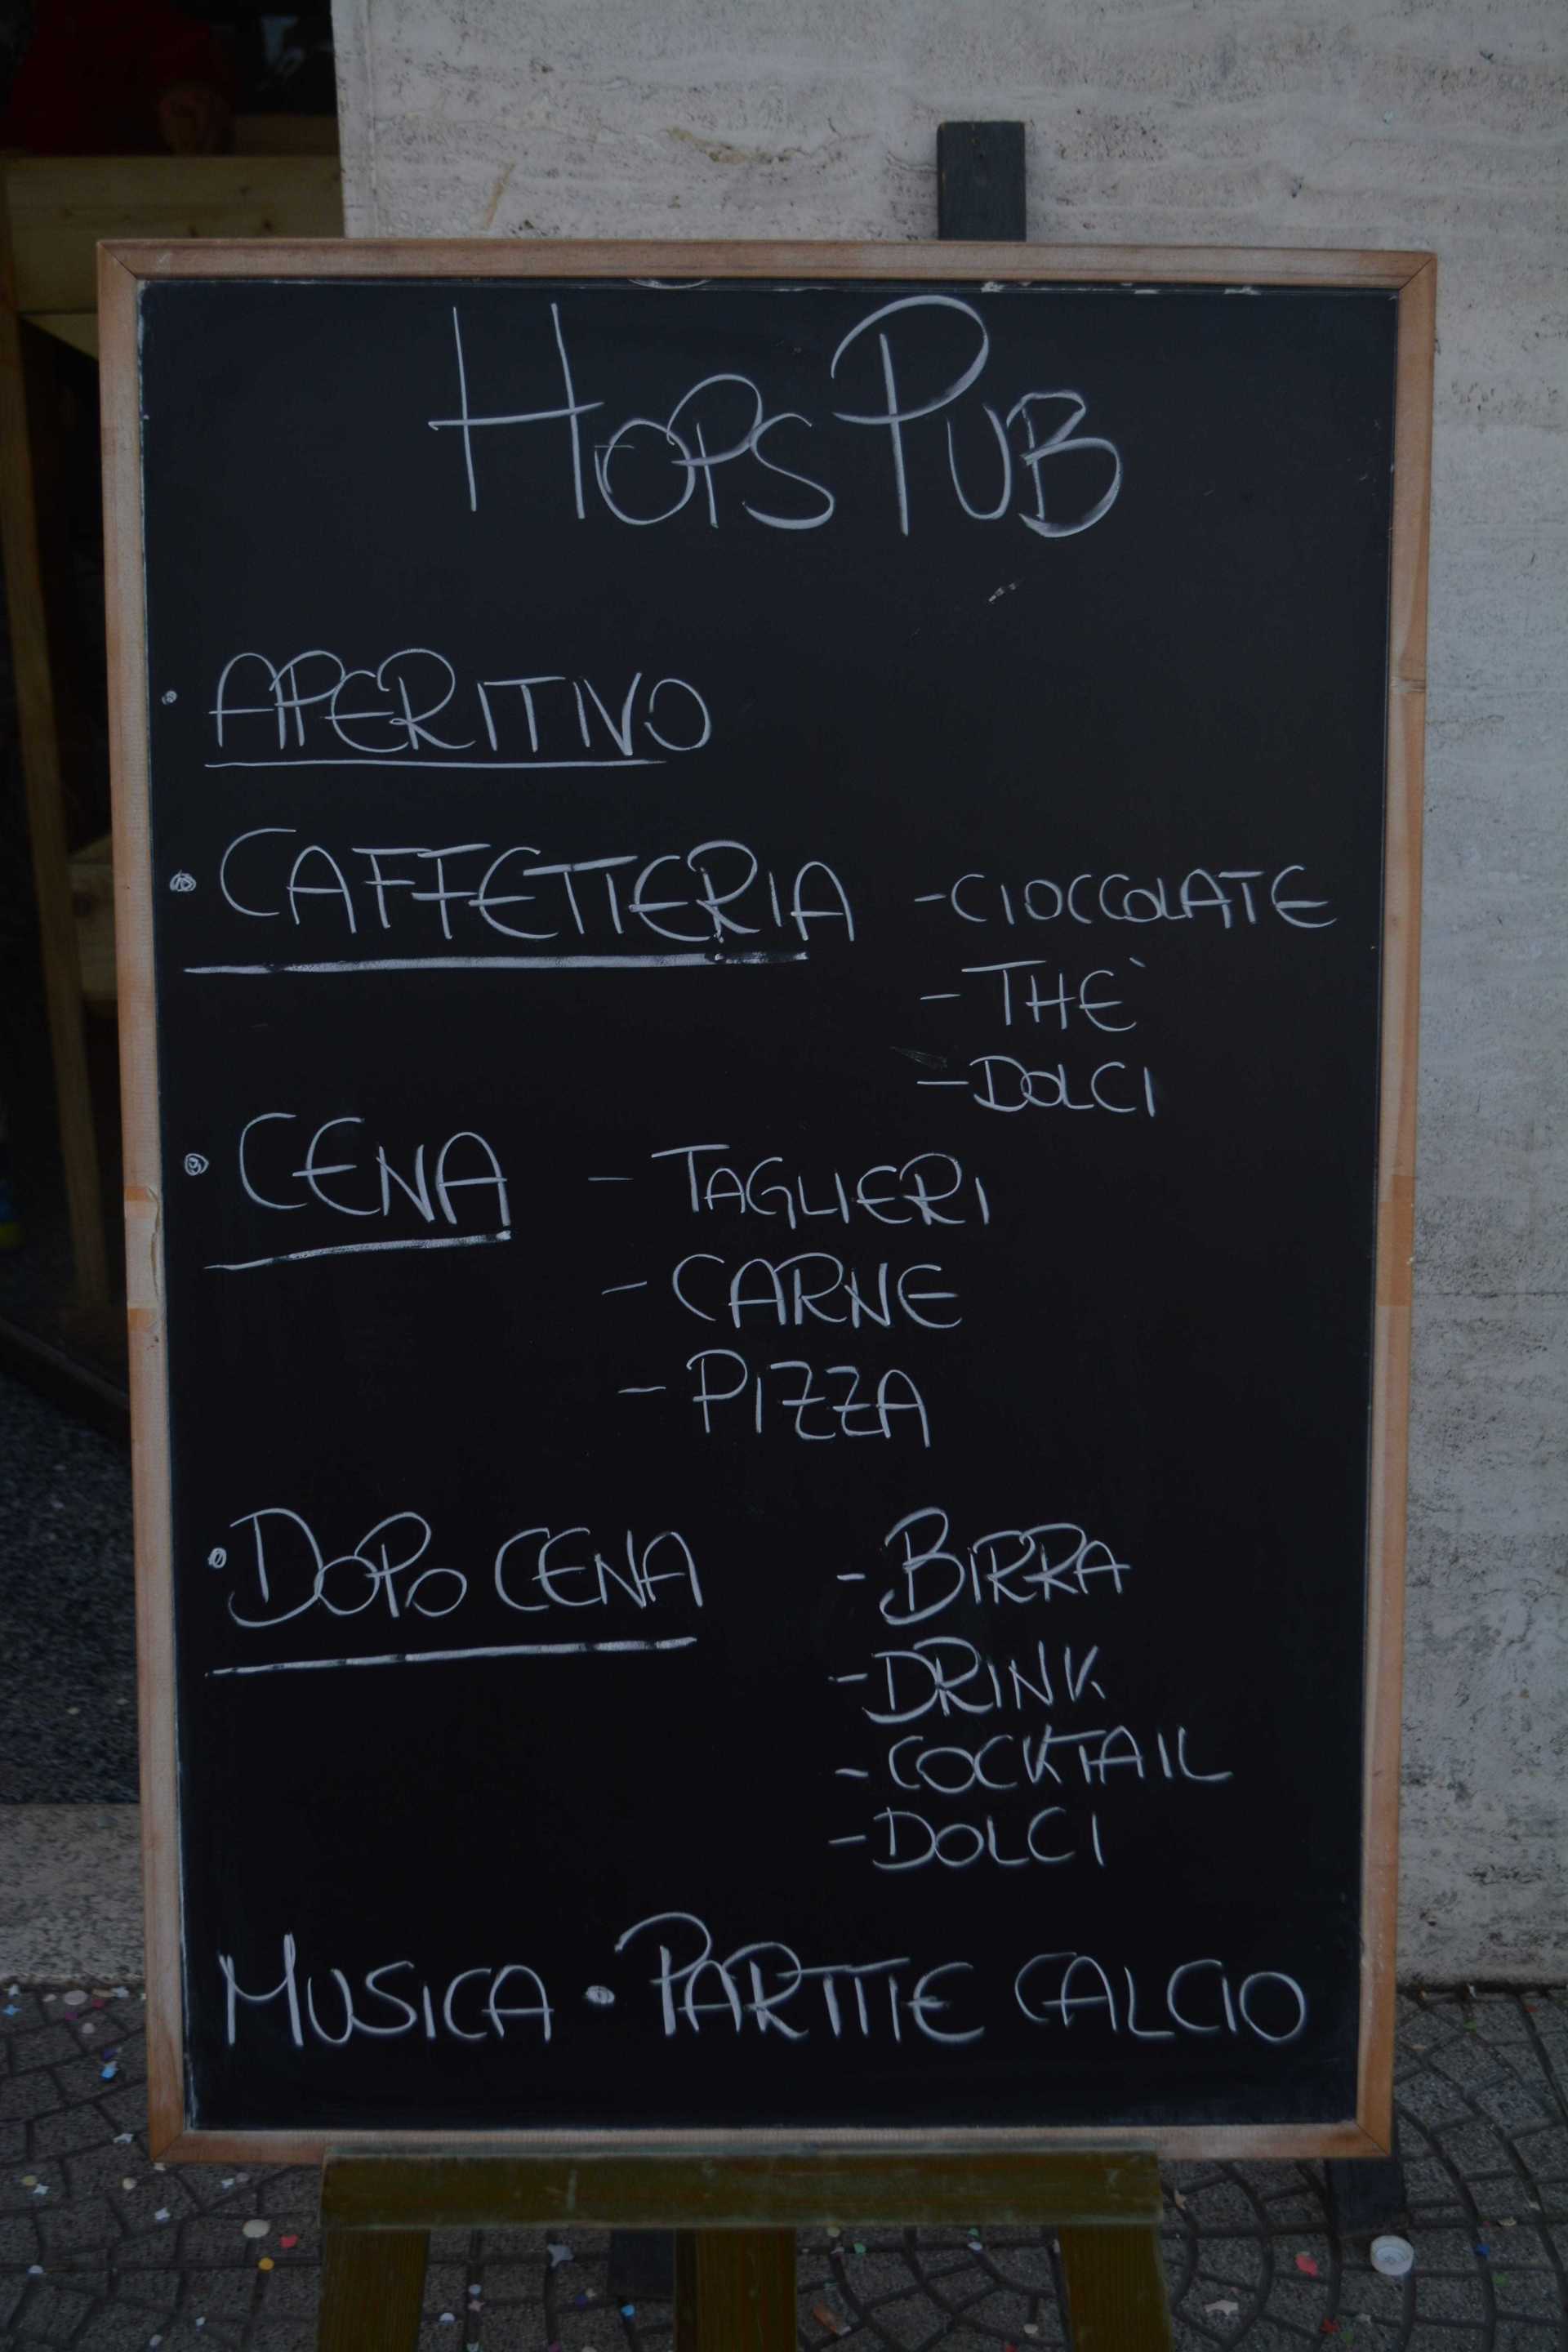 HOPS PUB
• APERITIVO
• CAFFETTERIA - CIOCCOLATE
- THE`
- DOLCI
• CENA - TAGLIERI
- CARNE
- PIZZA
• DOPO CENA - BIRRA
- DRINK
- COCKTAIL
- DOLCI
MUSICA • PARTITE CALCIO